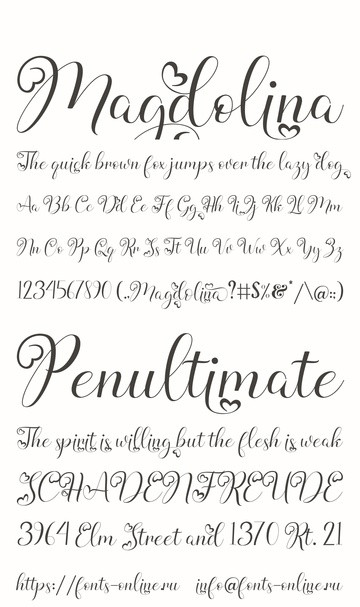 Magdolina
The quick brown fox jumps over the lazy dog.
Aa Bb Cc Dd Ee Ff Gg Hh Ii Jj Kk Ll Mm
Nn Oo Pp Qq Rr Ss Tt Uu Vv Ww Xx Yy Zz
1234567890 (.,Magdolina?#$%&*/\@:;)
Penultimate
The spirit is willing but the flesh is weak
SCHADENFREUDE
3964 Elm Street and 1370 Rt. 21
https://fonts-online.ru info@fonts-online.ru